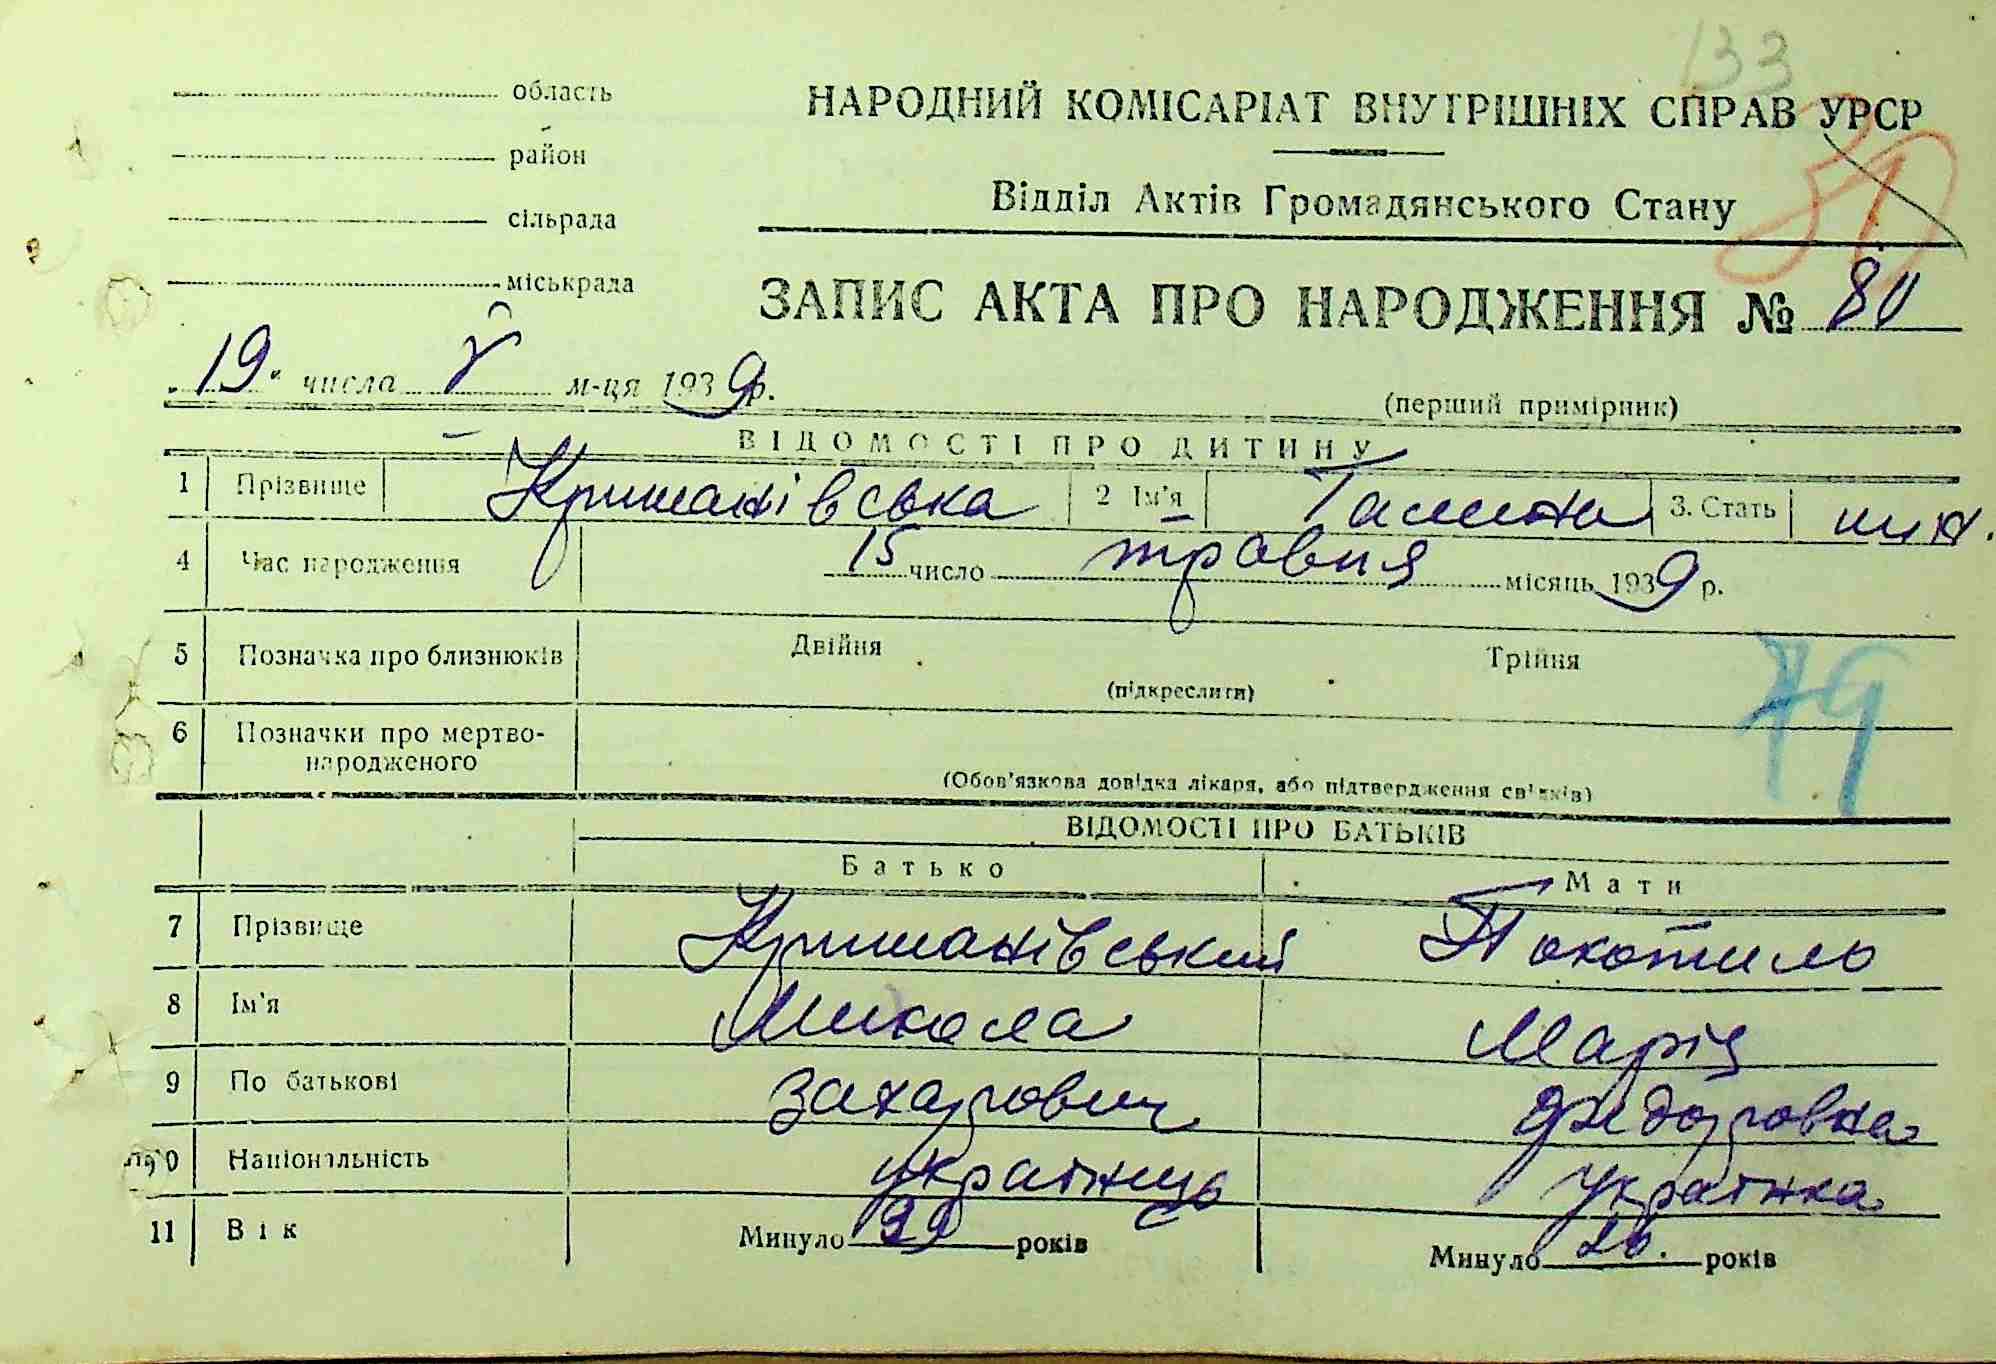 133
область
НАРОДНИЙ КОМІСАРІАТ ВНУТРІШНІХ СПРАВ УРСР
район
Відділ Актів Громадянського Стану
сільрада
міськрада
ЗАПИС АКТА ПРО НАРОДЖЕННЯ № 80
"19" числа V м-ця 1939р.
(перший примірник)
ВІДОМОСТІ ПРО ДИТИНУ
1 Прізвище Кришанівська 2 Ім'я Галина 3. Стать жін.
4 Час народження 15 число травня місяць 1939 р.
5 Позначка про близнюків Двійня Трійня
(підкреслити)
79
6 Позначки про мертво-
народженого
(Обов'язкова довідка лікаря, або підтвердження свідків)
ВІДОМОСТІ ПРО БАТЬКІВ
Батько Мати
7 Прізвище Кришанівський Покотило
8 Ім'я Микола Марія
9 По батькові Захарович Федоровна
10 Національність українець українка
11 Вік Минуло 39 років Минуло 26. років